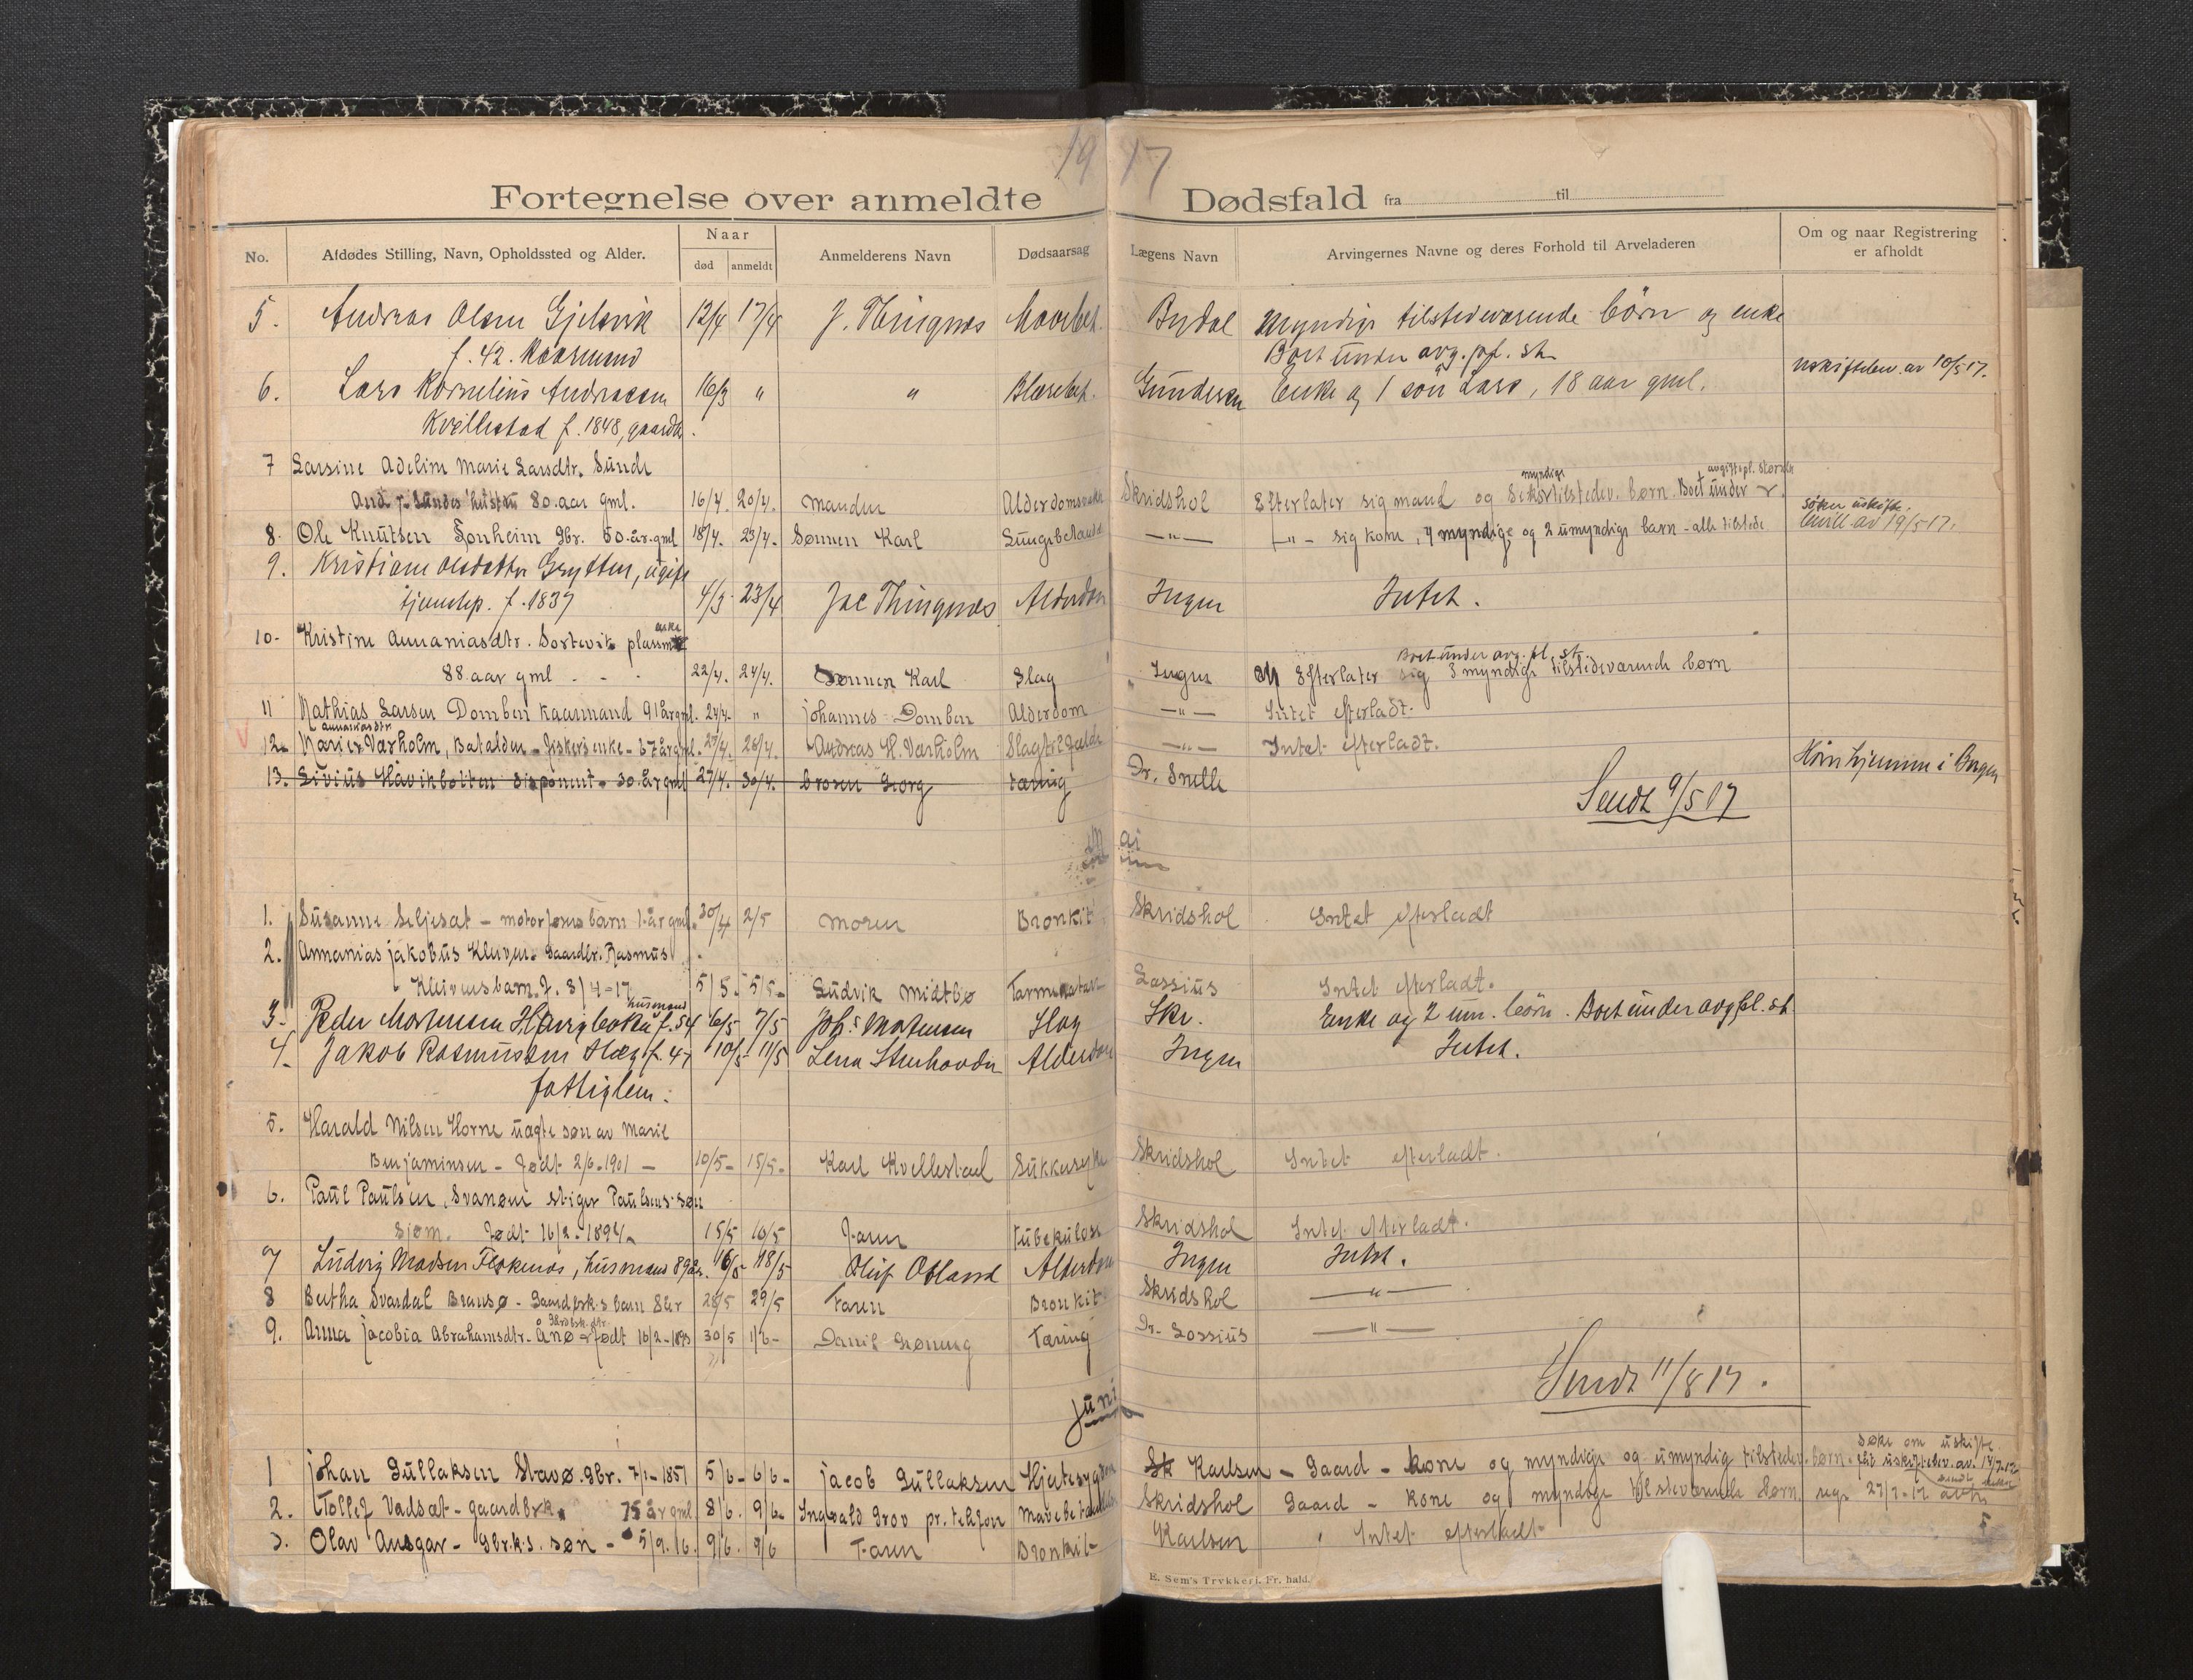 1917
Fortegnelse over anmeldte Dødsfald fra til
No. Afdødes Stilling, Navn, Opholdssted og Alder. Naar død anmeldt Anmelderens Navn Dødsaarsag Lægens Navn Arvingernes Navne og deres Forhold til Arveladeren Om og naar Registrering er afholdt
5. Andreas Olsen Gjelsvik 12/4 17/4 J. Thingnæs Bydal Myndige tilstedeværende börn og enke
f. 42. Kaarmand Boet under avg.pl. st.
6. Lars Kornelius Andreassen 16/3 " " Blærebet. Gundersen Enke og 1 sön Lars, 18 aar gml. uskiftebev. av 10/5 17.
Kvellestad f. 1848, gaardb.
7 Larsine Adeline Marie Larsdtr. Sunde myndige avgiftspl. størrelse
80 aar gml. 16/4. 20/4. Manden Alderdomssvak Skridshol Efterlater sig mand og tilstedev. børn. Boet under
søker uskifte.
8. Ole Knutsen Sonheim Gbr. 50 år gml 18/4. 23/4. Sønnen Karl Lungebetændel —"— —"— sig kone, 4 myndige og 2 umyndige barn - alle tilstede av 19/5 17.
9. Kristiane Olsdatter Grytten, ugift
tjenestep. f. 1837 4/3 23/4 Jac Thingnæs Alderdom Ingen Intet.
10. Kristine Annaniasdtr. Sortevik enke Boet under avg. pl. st.
88 aar gml - - - 22/4. 24/4. Sønnen Karl Slag Ingen Efterlater sig 3 myndige tilstedeværende børn
11 Mathias Larsen Domben Kaarmand 91 år gml. 24/4. " Johannes Domben Alderdom —"— Intet efterladt.
Annaniasdtr
12. Værholm, Batalden - fiskers enke - 67 år gml. 26/4. Andreas H. Værholm Slagtilfælde —"— Intet efterladt.
13. Sivius Håvikbotten Disponent - 30 år gml 27/4. 30/4. broren Georg tæring Dr. Snelle Hörer hjemme i Bergen
Sendt 9/5 17
Mai
1. Susanne Seljesæt - motorførers barn 1 år gml. 30/4 2/5 Moren Bronkit Skridshol Intet efterladt
2. Annanias Jakobus Kleiven. Gaardbr. Rasmus
Kleivens barn f. 3/4-17 5/5. 5/5- Ludvik Midtbø Tarmkatar Lossius Intet efterladt.
husmand
3. Peder Mortensen f. 54 6/5 7/5 Joh.s Mortensen Slag Skr. Enke og 2 um. börn. Boet under avg.pl. st.
4. Jakob Rasmussen f. 47 10/5- 11/5 Lena Alderdom Ingen Intet.
fattiglem.
5. Harald Nilsen Horne uægte søn av Marie
Benjaminsen - Født 2/6-1901 - 10/5- 15/5- Karl Kvellestad Sukkersyke Skridshol Intet efterladt.
6. Paul Paulsen, Svanøen stiger Paulsens søn
Sjøm. Født 16/2-1894. 15/5 16/5 Faren Tuberkulose Skridshol Intet efterladt.
7 Ludvig Madsen Flokenes, husmand 89 år. 16/5 18/5 Oluf Ofland Alderdom Ingen Intet.
8 Bertha Svardal Bransø - Gaardbrk.s barn 8 år 28/5 29/5 Faren Bronkit Skridshol —"—
Gårdbrk.dtr.
9. Anna Jacobia Abrahamsdtr. Ånø - født 16/2-1893 30/5 1/6- Daniel Grøneng Tæring Dr. Lossius —"—
Sendt 11/8 17.
Juni
søkt om uskifte
1 Johan Gullaksen Stavø. Gbr. 7/1-1851 5/6- 6/6- Jacob Gullaksen Hjertesygdom Karlsen - Gaard - kone og myndige og umyndig tilstedev. børn. uskiftebev. av 14/7-17
2. Tollef Vadsæt - gaardbrk. 75 år gml 8/6. 9/6 Ingvald Grov pr. telefon Mavebetændelse Skridshol Gaard - kone og myndige tilsteværende børn. regr 27/7-17
3. Olav Ansgar - Gbr.k.s. søn - 5/9.16. 9/6. 9/6 Faren Bronkit Karlsen Intet efterladt
E. Sem's Trykkeri, Fr.hald.